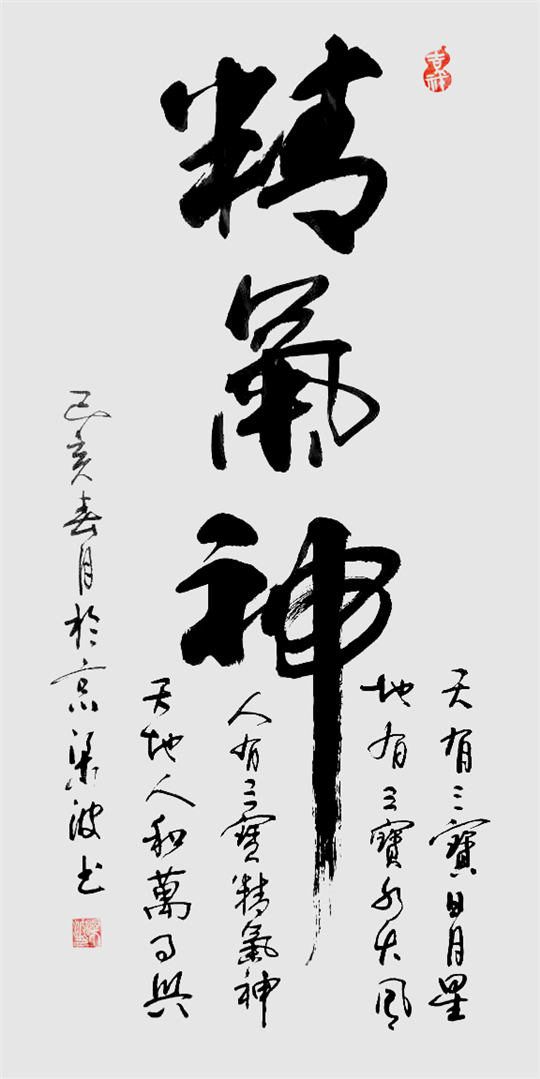 精氣神
天有三寶日月星
地有三寶水火風
人有三寶精氣神
天地人和萬事興
己亥春月於京梁波书
吉祥